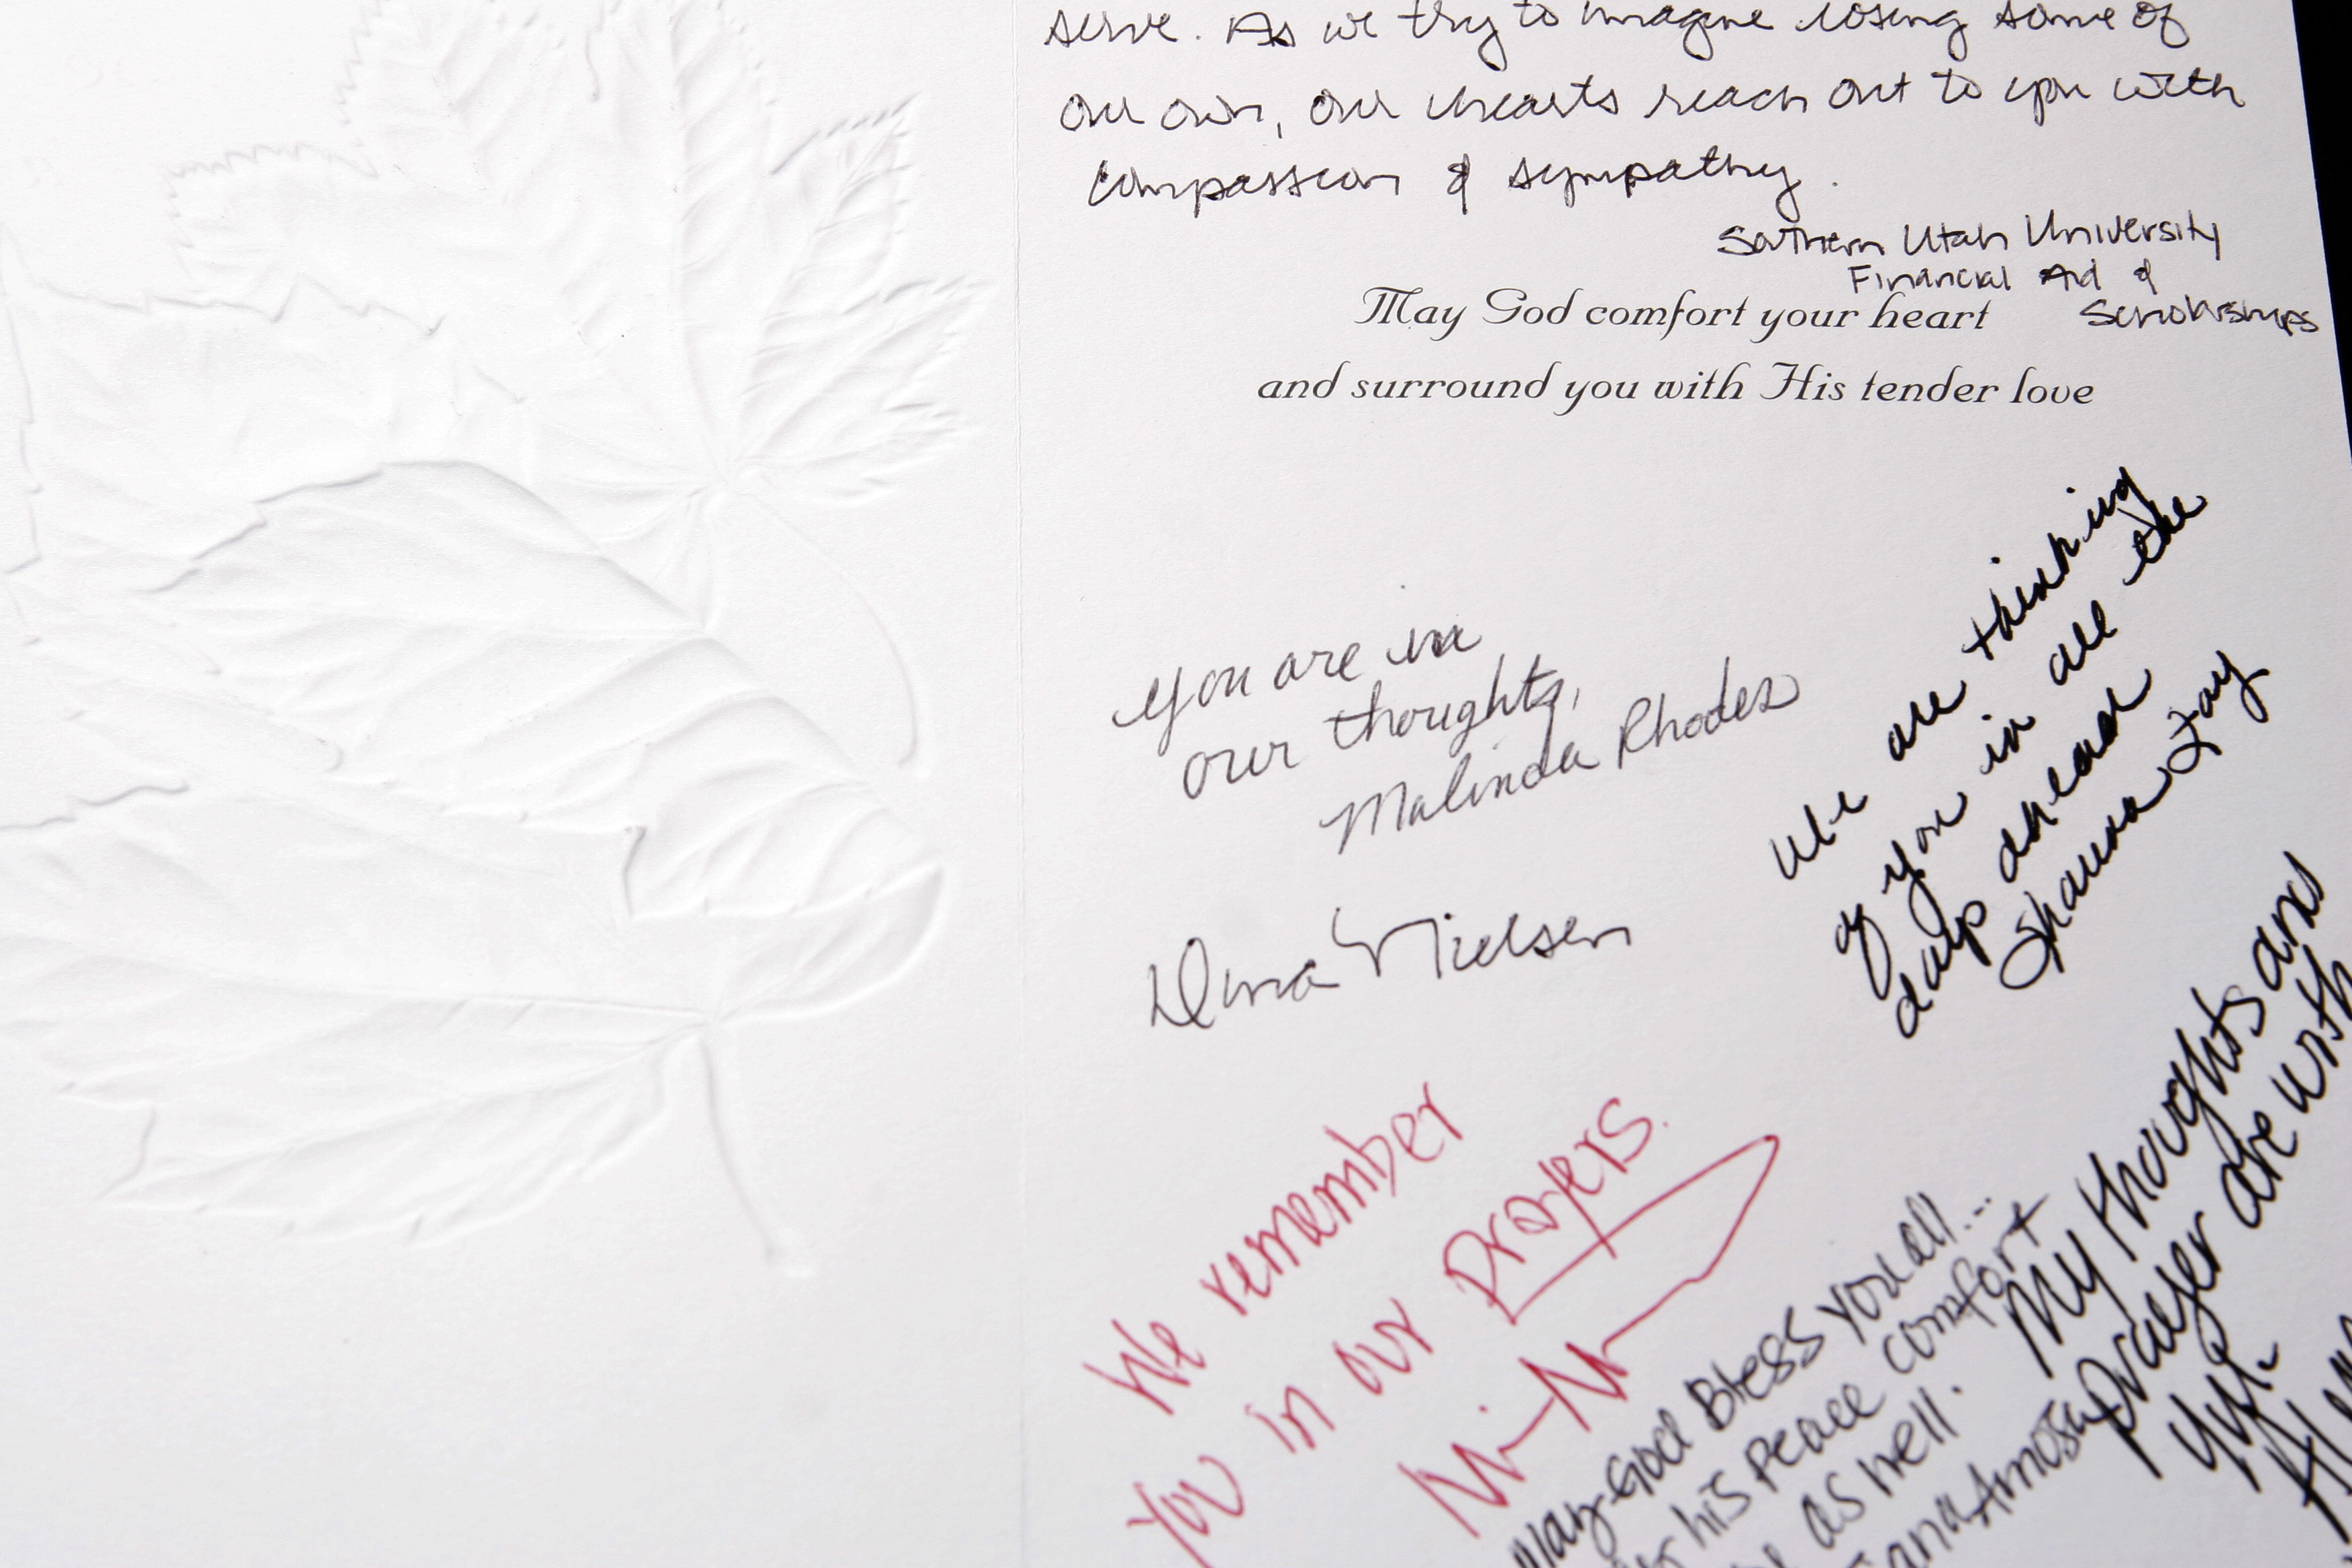 serve. As we try to imagine losing some of
our own, our hearts reach out to you with
compassion & sympathy.
Southern Utah University
Financial Aid &
Scholarships
May God comfort your heart
and surround you with His tender love
You are in
our thoughts,
Malinda Rhodes
We are thinking
of you in all the
days ahead
Shauna
Nielsen
We remember
you in our prayers.
My thoughts and
prayer are with
you.
May God Bless you all...
his peace comfort
as well.